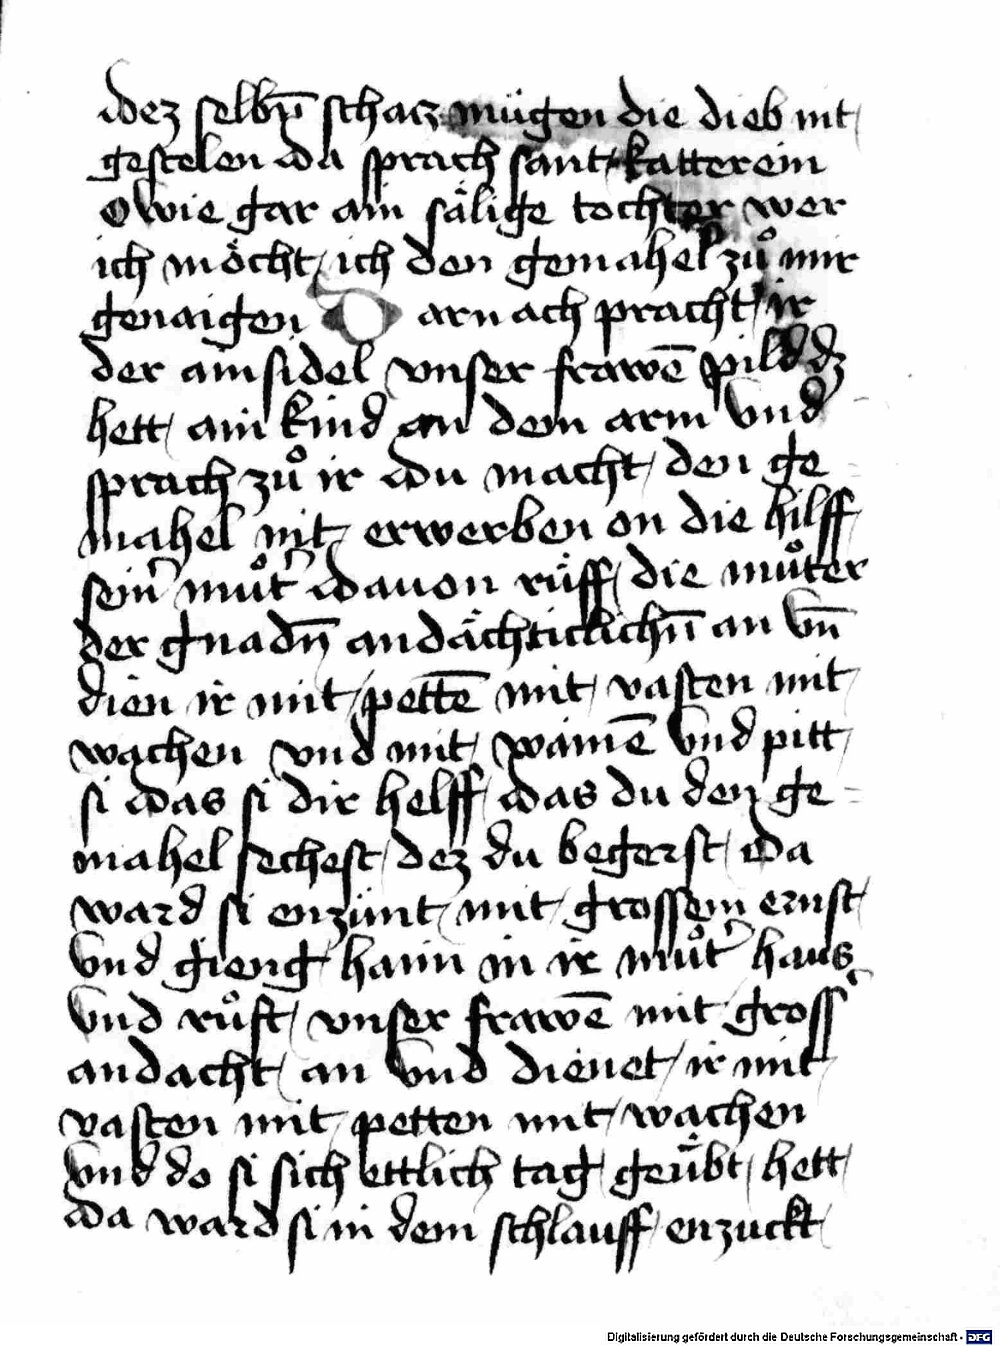 dez selbn̄ schacz mügen die dieb nit
gestelen da sprach sant katterein
O wie gar ain sälige tochter wer
ich möcht ich den gemahel zů mir
genaigen Darnach pracht ir
der ainsidel vnser frawē pild dz
hett ain kind an dem arm vnd
sprach zů ir du macht den ge
mahel nit erwerben on die hilff
sein̉ můt̉ dauon rüff die můter
der gnadn̄ andächticlichn̄ an vn̄
dien ir mit pettē mit vasten mit
wachen vnd mit wainē vnd pitt
si das si dir helff das du den ge
mahel sechest dez du begerst da
ward si enzünt mit grossem ernst
vnd gieng haim in ir můt̉ haus
vnd růft vnser frawē mit gross̉
andacht an vnd dienet ir mit
vasten mit petten mit wachen
vnd do si sich ettlich tag geübt hett
da ward si in dem schlauff enzuckt
Digitalisierung gefördert durch die Deutsche Forschungsgemeinschaft - DFG